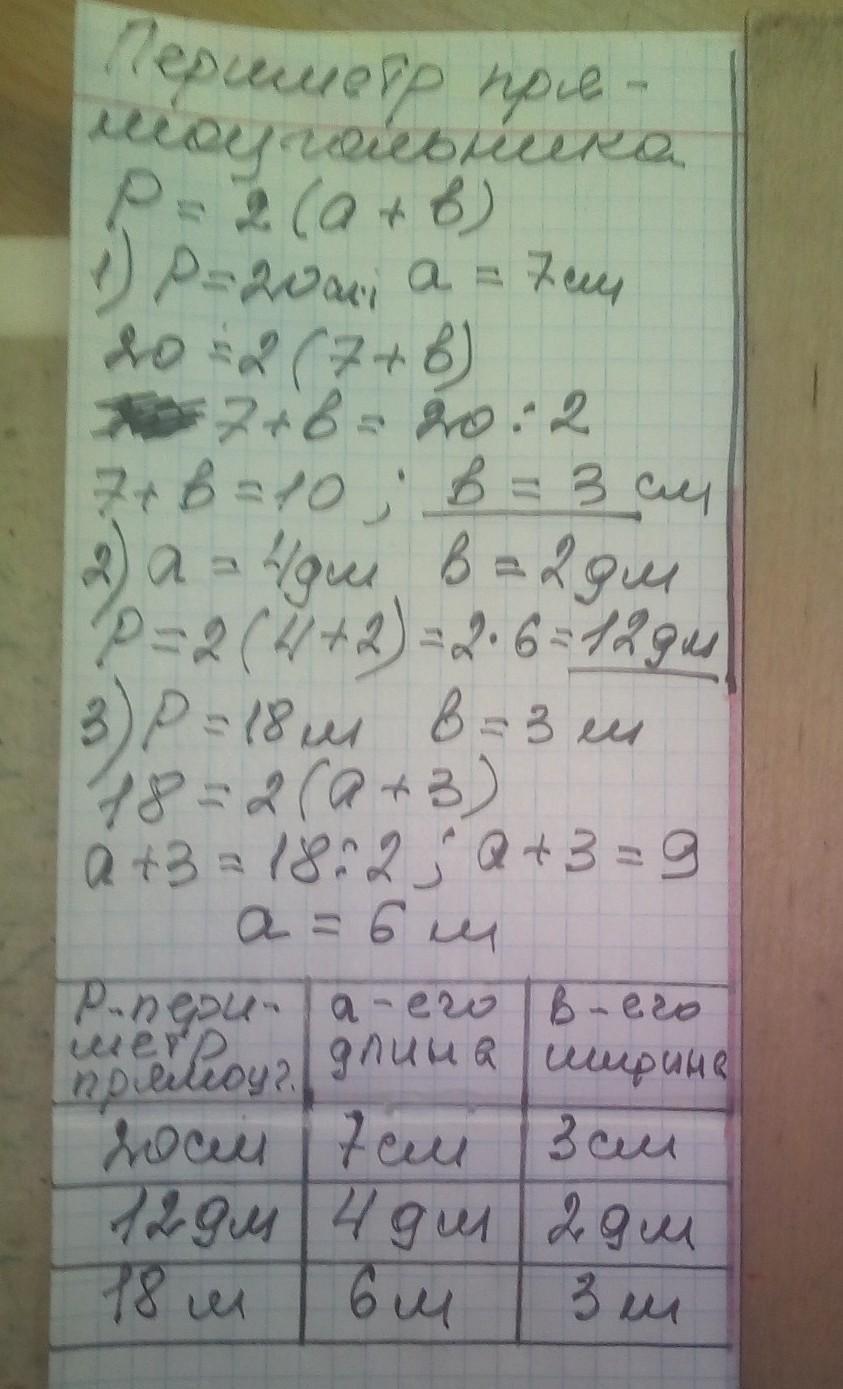 Периметр пря-
моугольника
P = 2(a + b)
1) P = 20 см; a = 7 см
20 = 2(7 + b)
7 + b = 20 : 2
7 + b = 10 ; b = 3 см
2) a = 4 дм b = 2 дм
P = 2(4 + 2) = 2 · 6 = 12 дм
3) P = 18 м b = 3 м
18 = 2(a + 3)
a + 3 = 18 : 2 ; a + 3 = 9
a = 6 м
P - пери- a - его b - его
метр длина ширина
прямоуг.
20 см 7 см 3 см
12 дм 4 дм 2 дм
18 м 6 м 3 м